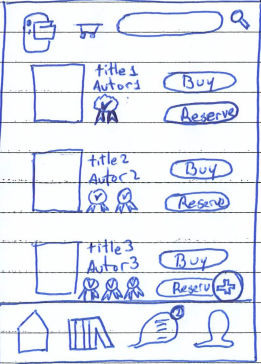 title1
Autor1
Buy
Reserve
title2
Autor2
Buy
Reserve
title3
Autor3
Buy
Reserv
2